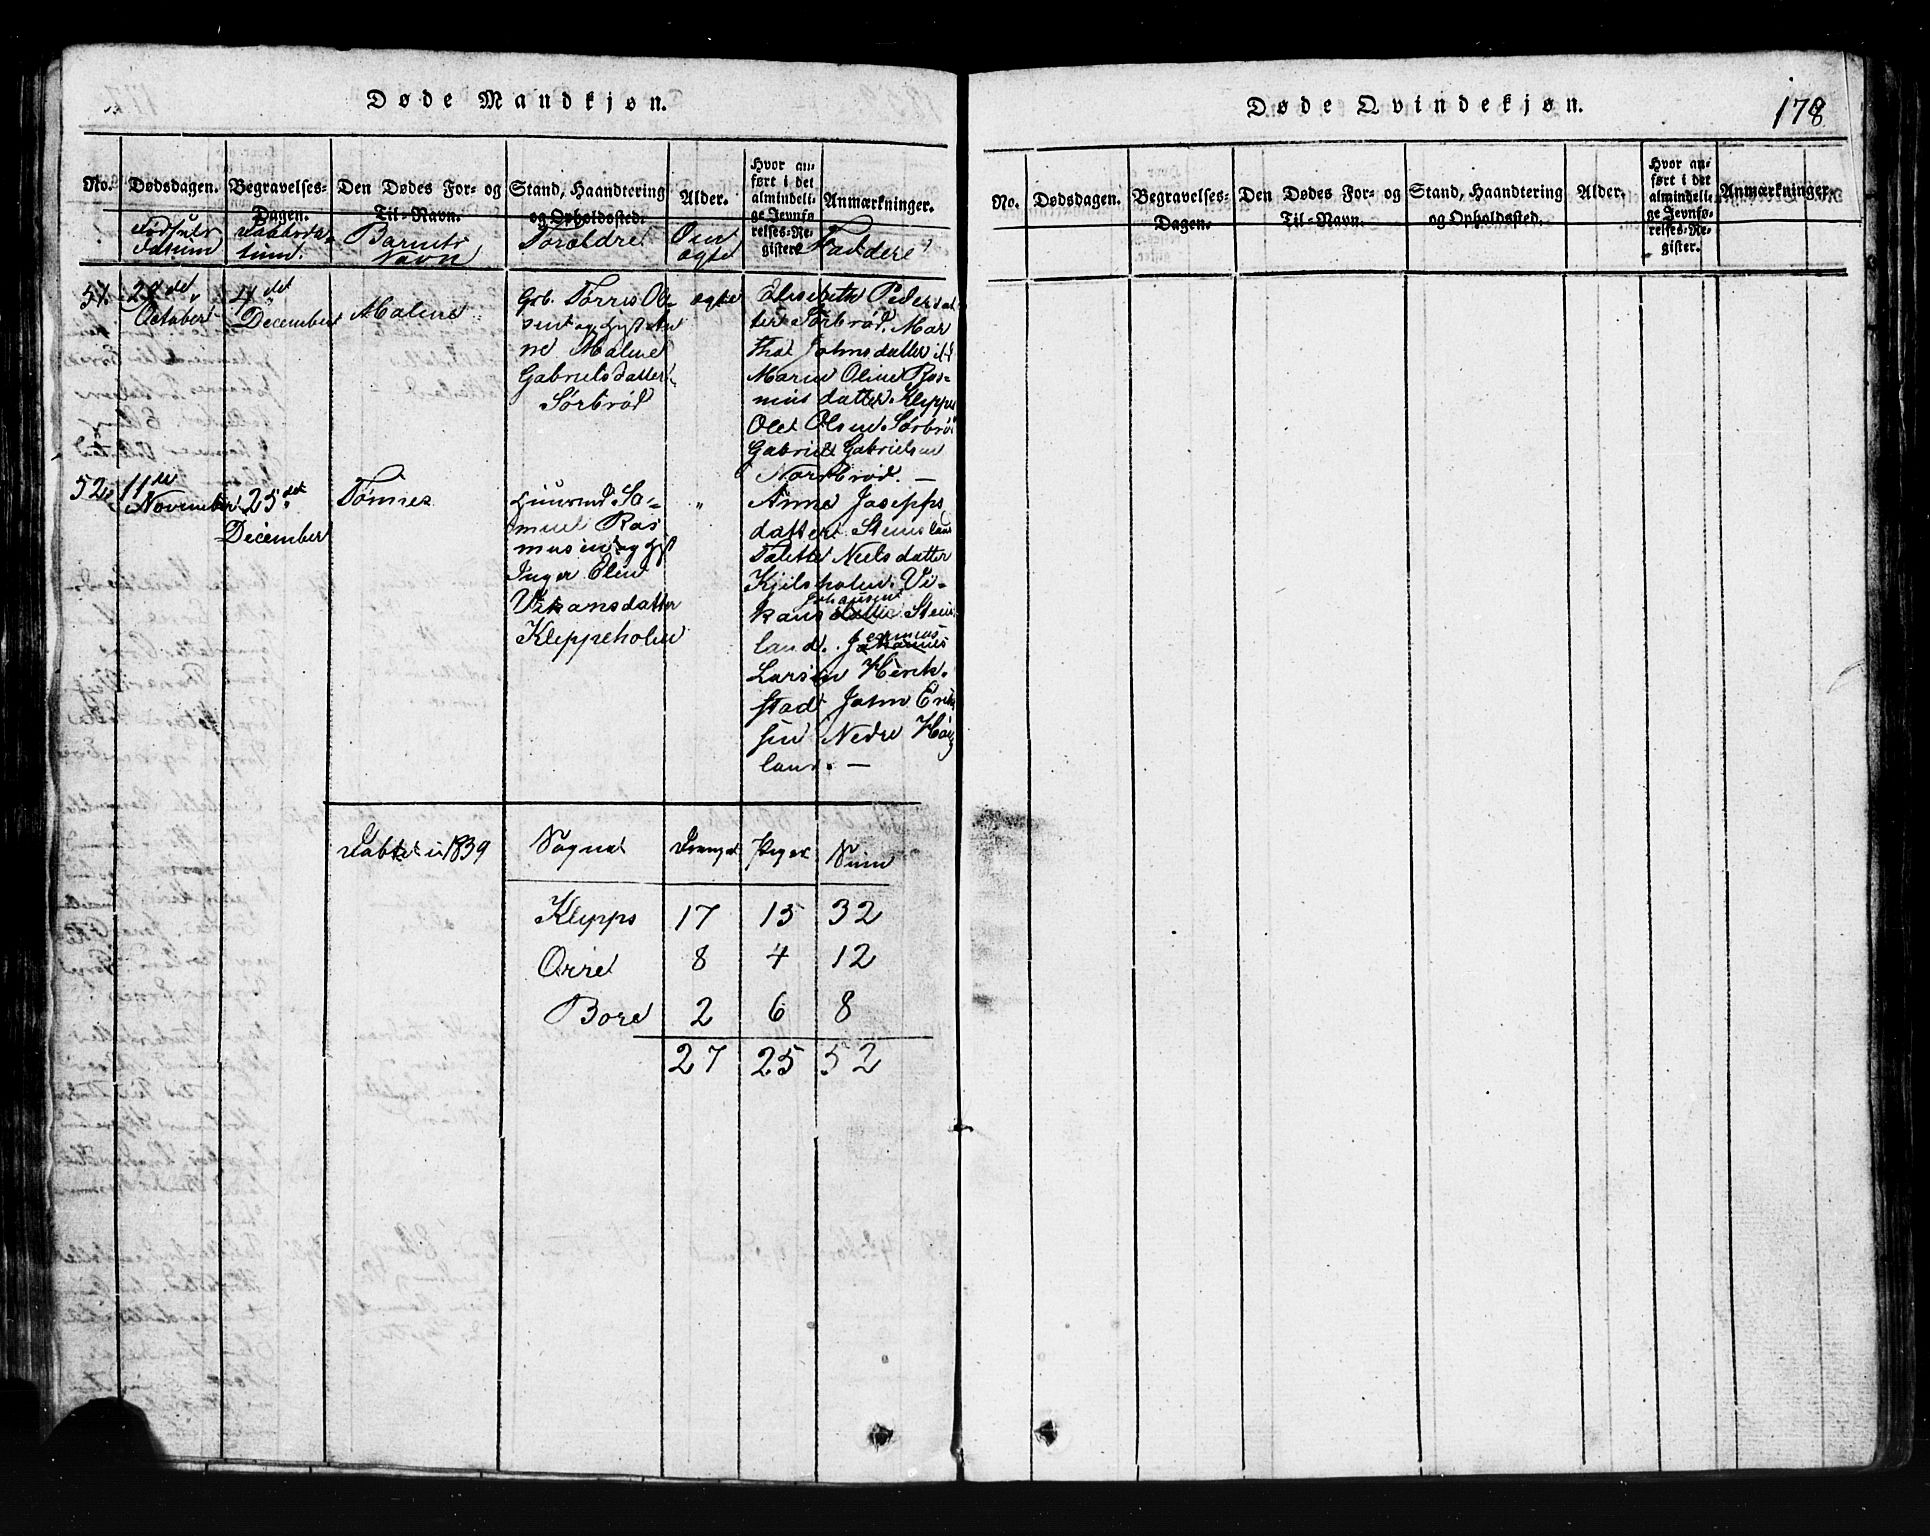 Døde Mandkjøn.
No.
Dødsdagen.
Begravelses-
Dagen.
Den Dødes For- og
Til-Navn.
Stand, Haandtering
og Opholdssted.
Alder.
Hvor an-
ført i det
almindeli-
ge Jevnfø-
relses-Re-
gister.
Anmærkninger.
Fødsels
Datum
Daabsda-
tum.
Barnets
Navn
Forældre
Om
ægte
Faddere
51.
29de
October
4det
December
Maline
Grb. Tørres Ol-
sen og Hust An-
ne Maline
Gabrielsdatter
Sørbrød
ægte
Elisebeth Peders dat
ter Sørbrød. Mar
tha Johnsdatter
Maren Oline Ras-
mus datter Kleppe
Ole Olsen Sørbrød
Gabriel Gabrielsen
Nordbrød. —
52.
11te
November
25det
December
Tønnes
Huusmd. Sa-
muel Ras
musen og Hust
Inger Elen
Vikansdatter
Kleppeholen
"
Anne Joseps
datter. Steinsland
Talette Nielsdatter
Kjelsholen. Vi-
Johansen
kans datter Stens
land. Johannes
Larsen Henrik-
stad John Erik
sen Nedre Høi
land. —
Døbte i 1839
Sogne
Drenge
Piger
Sum
Klepps 17 15 32
Orre 8 4 12
Bore 2 6 8
27 25 52
Døde Qvindekjøn.
178
No.
Dødsdagen.
Begravelses-
Dagen.
Den Dødes For- og
Til-Navn.
Stand, Haandtering
og Opholdssted.
Alder.
Hvor an-
ført i det
almindeli-
ge Jevnfø-
relses-Re-
gister.
Anmærkninger.